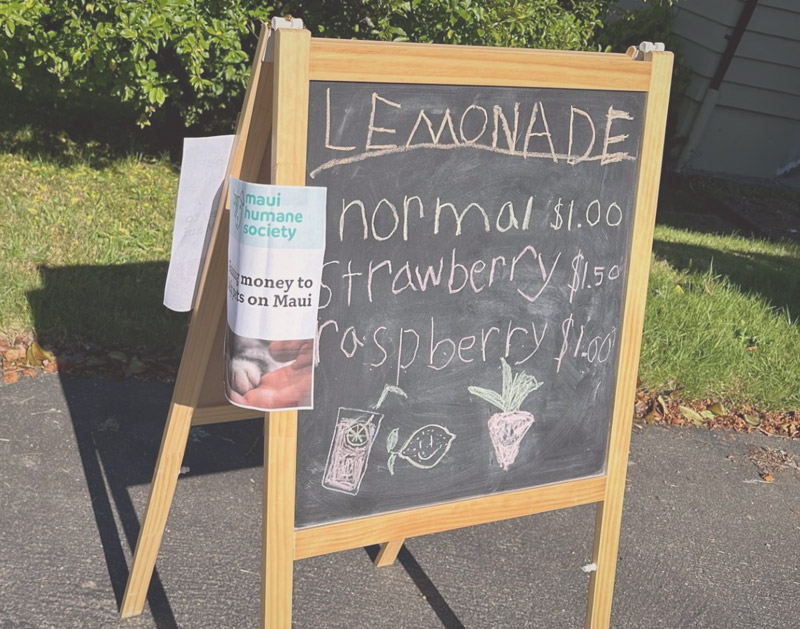 LEMONADE
normal $1.00
strawberry $1.50
raspberry $1.00
maui
humane
society
money to
on Maui